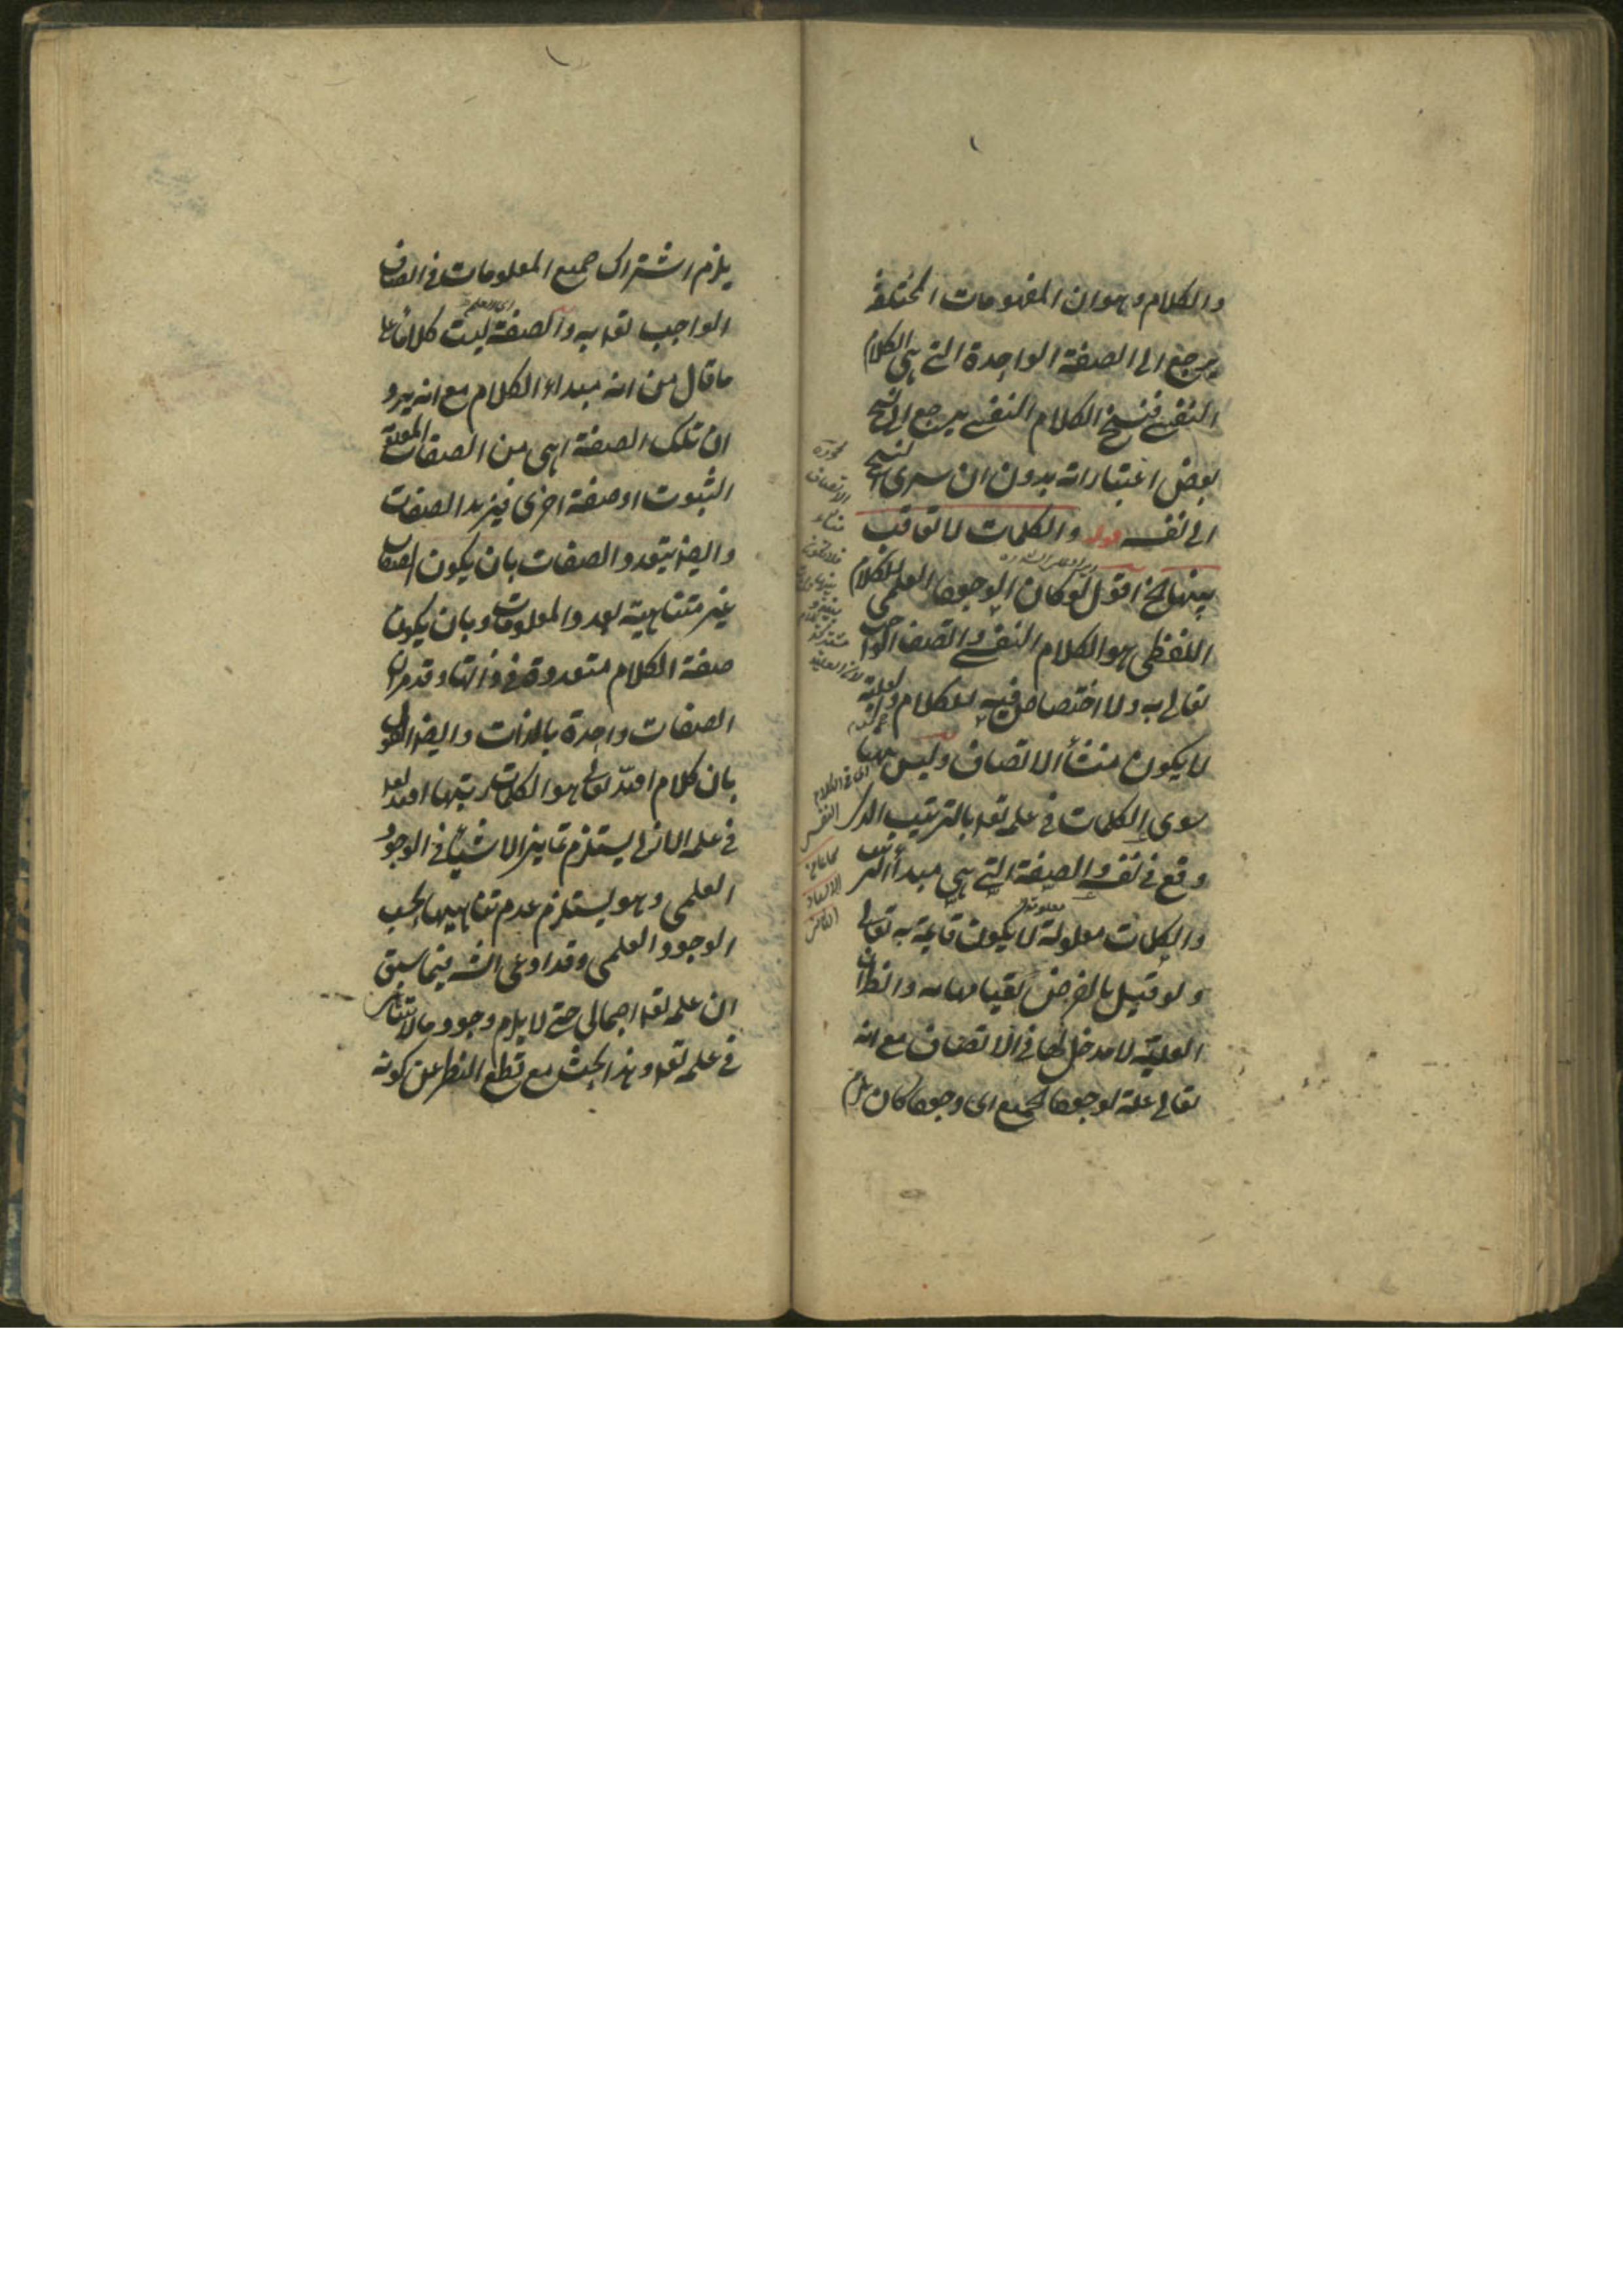 والكلام وهو ان المفهومات المختلفة
يرجع الى الصفة الواحدة التي هي الكلام
النفسي فنسخ الكلام النفسي يرجع الى نسخ
بعض اعتباراته بدون ان يسرى النسخ
الى نفسه قوله والكلمات لا تعاقب
بينها الخ اقول لو كان الوجود العلمي للكلام
اللفظي هو الكلام النفسي واتصف الواجب
تعالى به ولا اختصاص فيه للكلام والعلية
لا يكون منشأ الاتصاف وليس ههنا
سوى الكلمات في علمه تعا بالترتيب الذي
وقع في نفسه والصفة التي هي مبدأ الترتيب
والكلمات معلولة لا يكون قايمة به تعالى
ولو قيل بالفرض بقيامها به والظ ان
العلية لا مدخل لها في الاتصاف مع انه
تعالى علة لوجود الجميع اى وجود كان يلزم
اى في الكلام
النفسي
يلزم اشتراك جميع المعلومات في اتصاف
الواجب تعا به والصفة ليست كلاما على
اى العلم
ما قال من انه مبداء الكلام مع انه يرد
ان تلك الصفة اهى من الصفات السبعة
الثبوت او صفة اخرى فيزيد الصفات
وايضا يتعدد الصفات بان يكون الصفات
غير متناهية لعدد المعلومات وبان يكون
صفة الكلام متعددة في ذاتها وقد مر ان
الصفات واحدة بالذات وايضا القول
بان كلام الله تعالى هو الكلمات رتبها الله تعا
في علمه الازلي يستلزم تمايز الاشياء في الوجود
العلمي وهو يستلزم عدم تناهيها بحسب
الوجود العلمي وقد ادعى الشه فيما سبق
ان علمه تعا اجمالي حتى لا يلزم وجود ما لا يتناهى
في علمه تعا وهذا البحث مع قطع النظر عن كونه